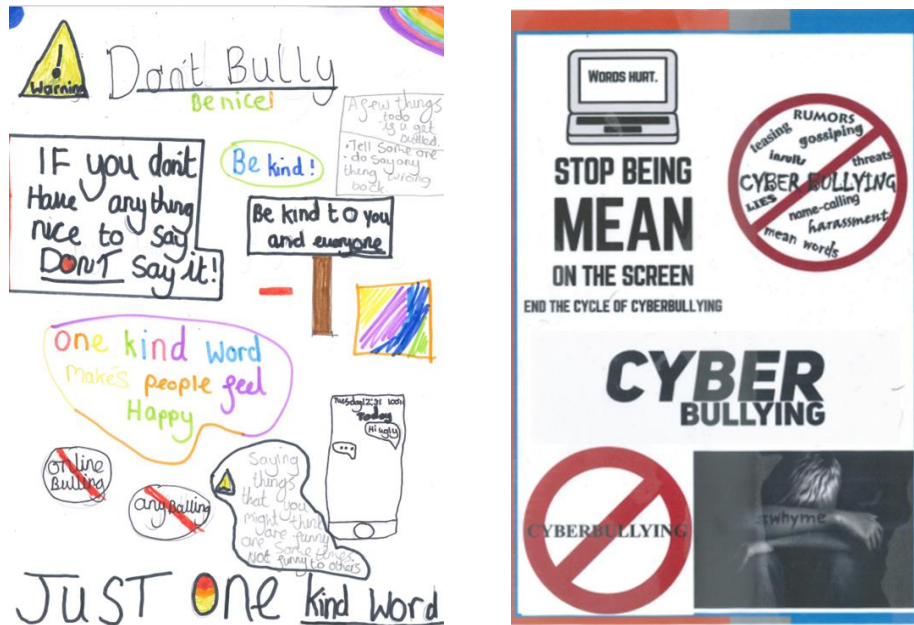 Warning
Don't Bully
Be nice!
A few things
todo
is u get
bullied.
• Tell some one
• do say any
thing wrong
back
IF you don't
Have anything
nice to say
DON'T say it!
Be kind!
Be kind to you
and everyone
one kind word
makes people feel
Happy
Today
Hi ugly
online
Bulling
any Balling
Saying
things
that you
might think
are funny
are some times
not funny to others
JUST One kind word
WORDS HURT.
STOP BEING
MEAN
ON THE SCREEN
END THE CYCLE OF CYBERBULLYING
RUMORS
teasing
gossiping
insults
threats
CYBER BULLYING
LIES
name-calling
harassment
mean words
CYBER
BULLYING
CYBERBULLYING
whyme